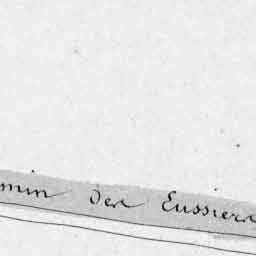 min des Eussiere